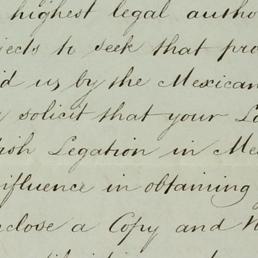 highest legal autho
jects to seek that pro
id us by the Mexican
solicit that your Lo
ish Legation in Me
nfluence in obtaining
close a Copy and